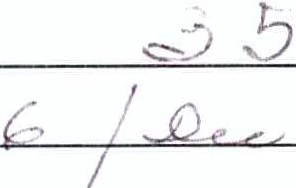 35
6 / Dec